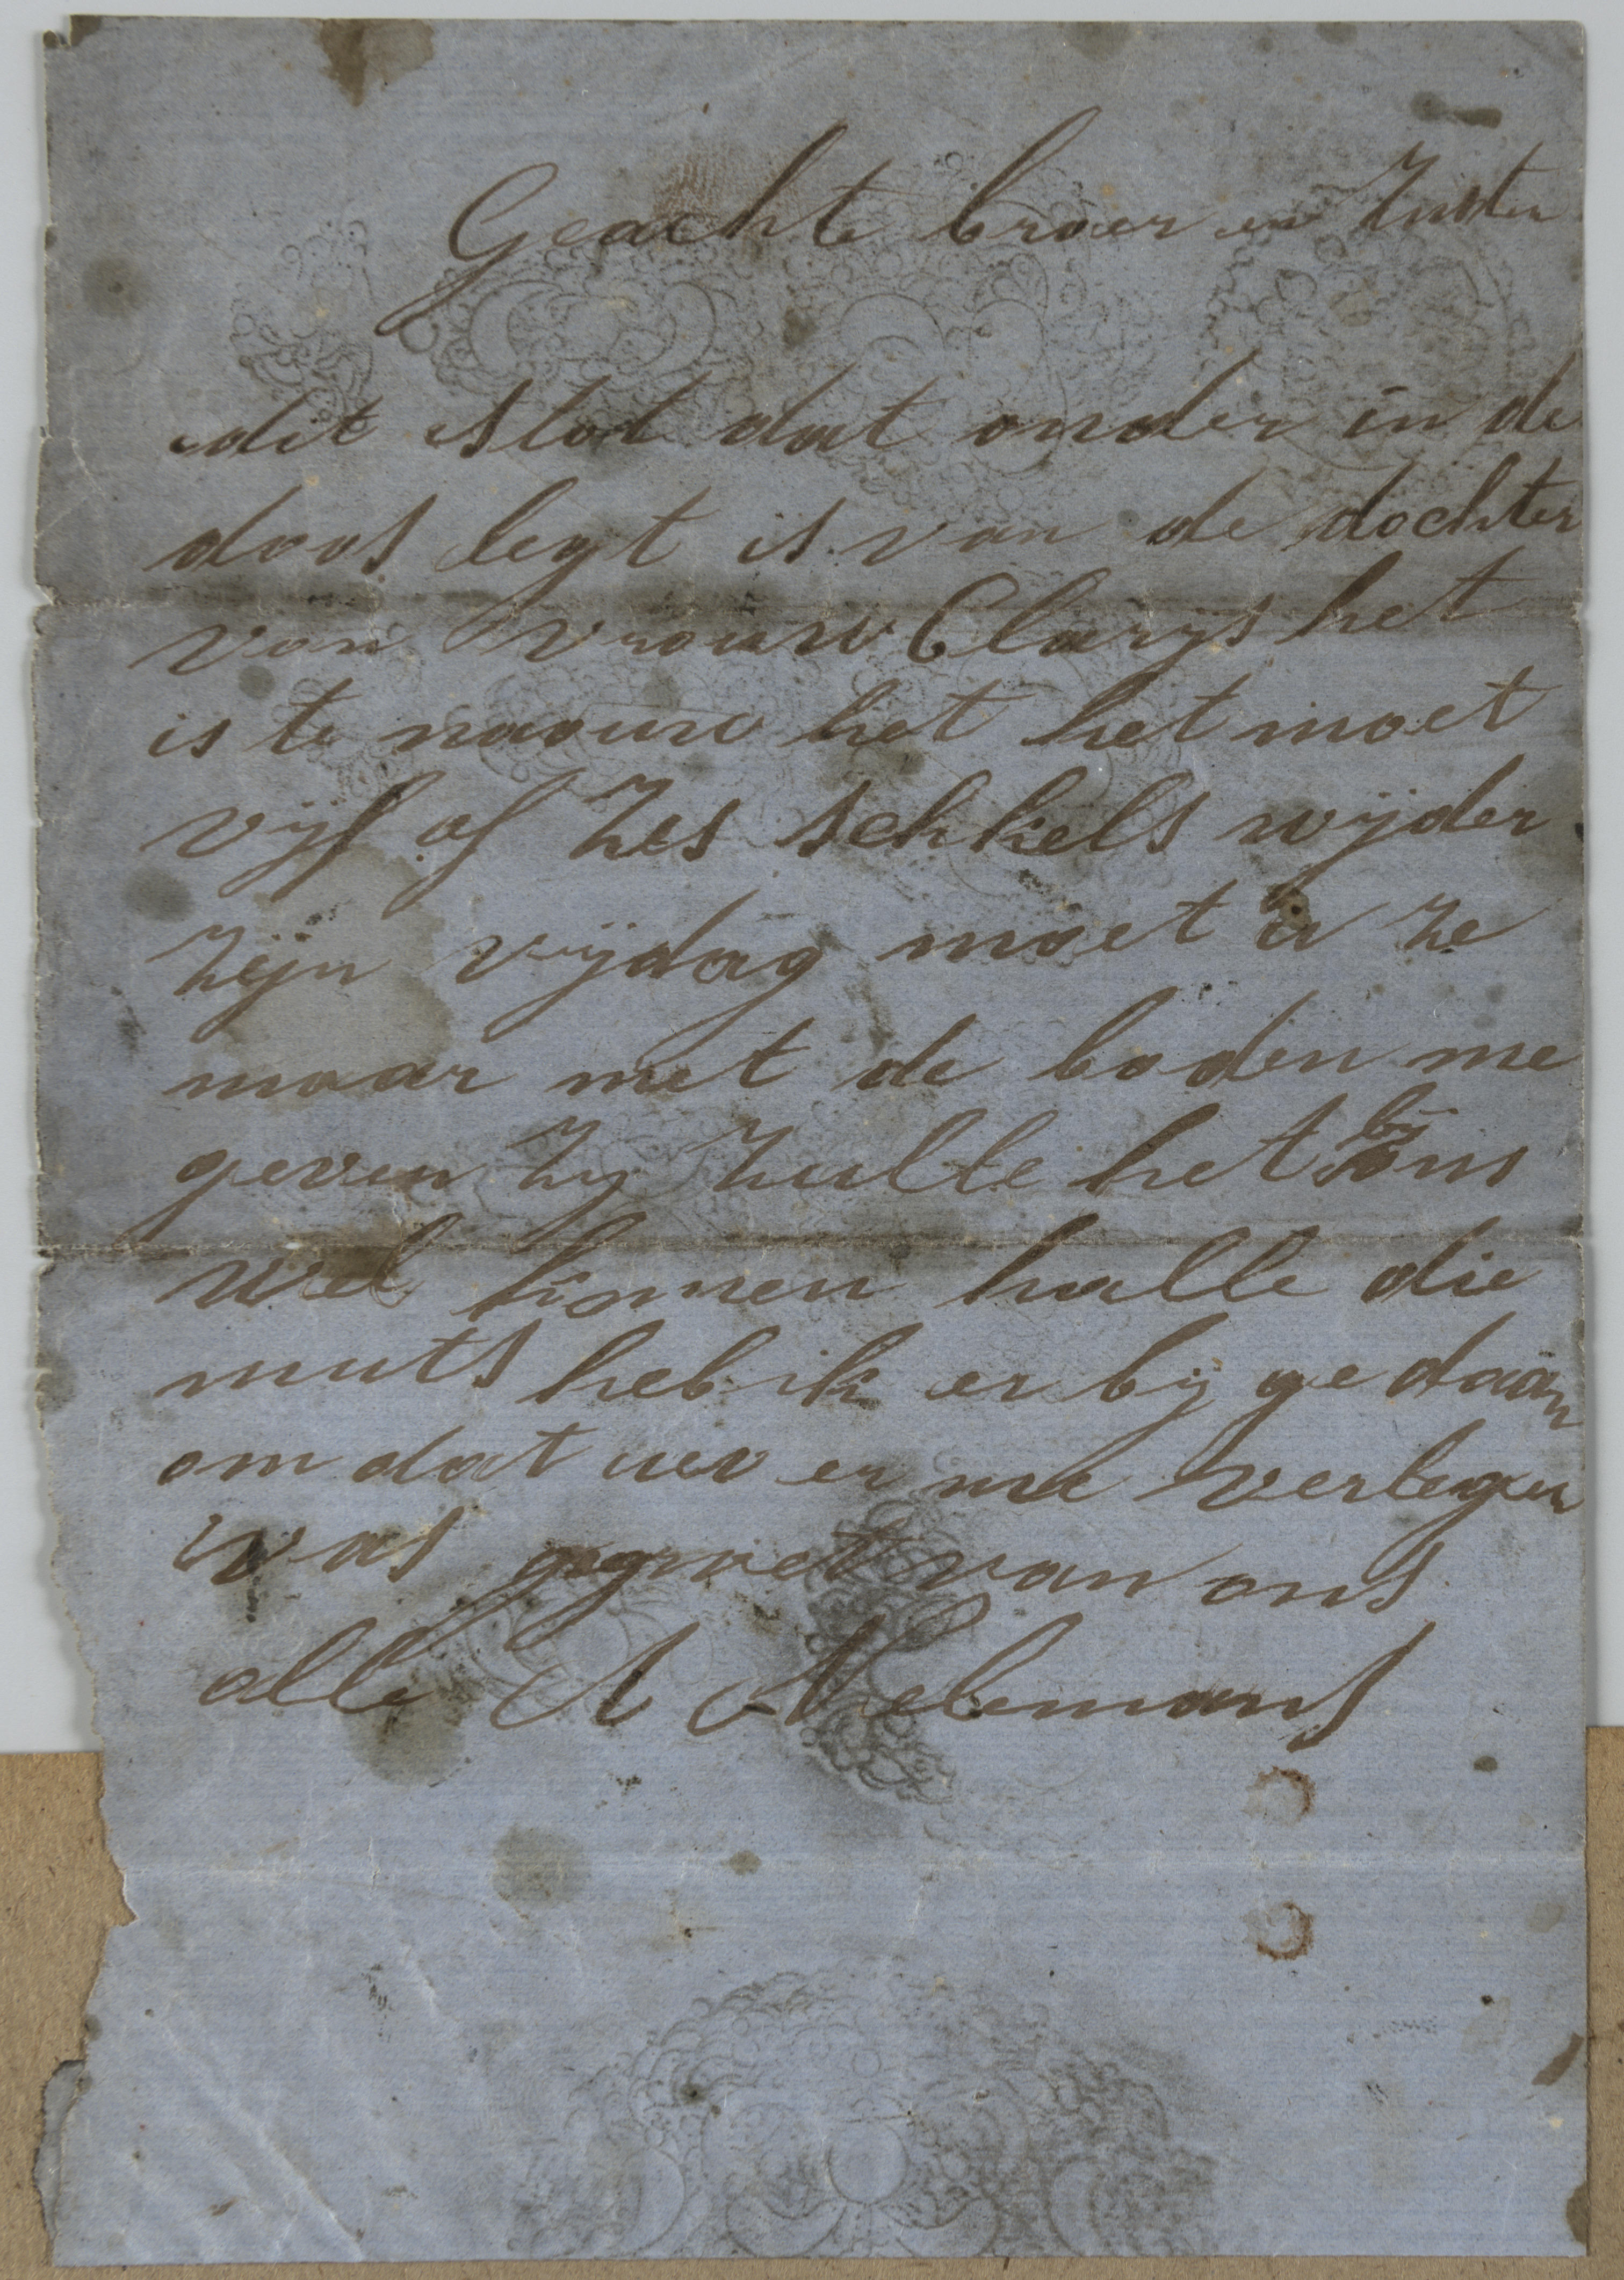 Geachte broer en Zuster
dit slot dat onder in de
doos legt is van de dochter
van vrouw Clarijs het
is te naauw het het moet
vijf of Zes schkels wijder
Zijn vrijdag moet u ze
maar met de boden me
geven Zij Zulle het bij ons
wel komen halle die
muts heb ik er bij gedaan
om dat uw er me verlegen
was gegroet van ons
alle A Melemans